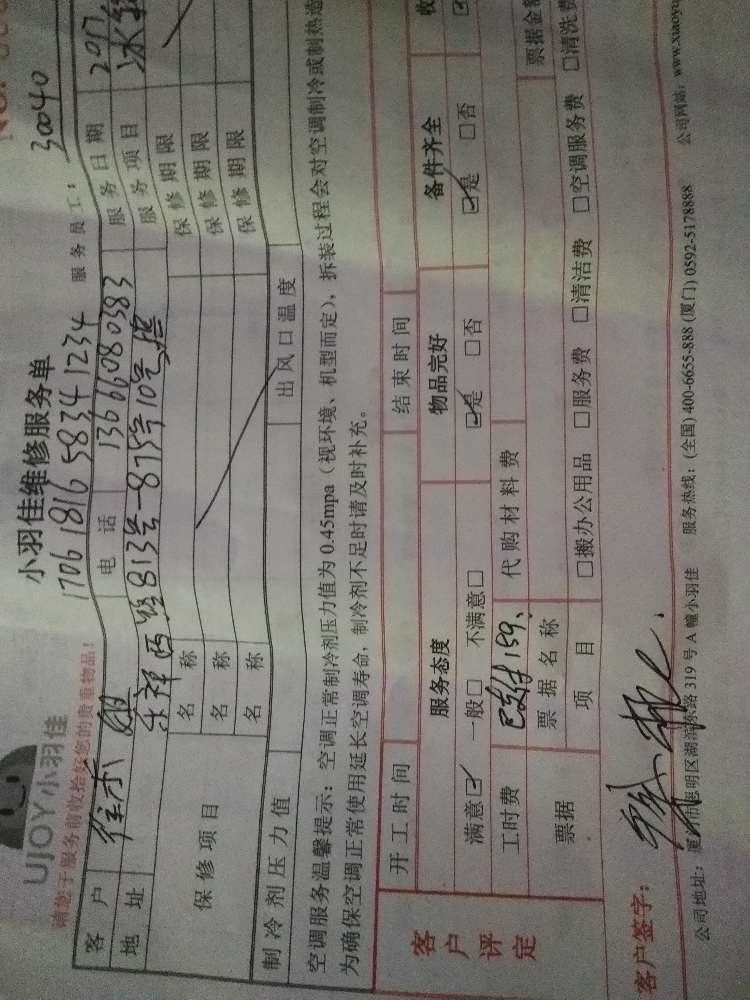 NO.
UJOY小羽佳
小羽佳维修服务单
1706 1816 5834 1234
请您于服务前收拾好您的贵重物品!
服务员工: 30040
客户 电话 13666080383 服务日期 2017
地址 813号-875号10号 服务项目
保修项目 名称 保修期限
名称 保修期限
名称 保修期限
制冷剂压力值 出风口温度
空调服务温馨提示:空调正常制冷剂压力值为0.45mpa(视环境、机型而定),拆装过程会对空调制冷或制热造
为确保空调正常使用延长空调寿命,制冷剂不足时请及时补充。
客户评定
开工时间 结束时间
服务态度 物品完好 备件齐全 收
满意☑ 一般□ 不满意□ ☑是 □否 ☑是 □否 ☑
工时费 已支付159、 代购材料费
票据 票据名称 票据金额
项目 □搬办公用品 □服务费 □清洁费 □空调服务费 □清洗费
客户签字:
公司地址:厦门市思明区湖滨东路319号A幢小羽佳 服务热线:(全国) 400-6655-888 (厦门) 0592-5178888 公司网站:www.xiaoyu